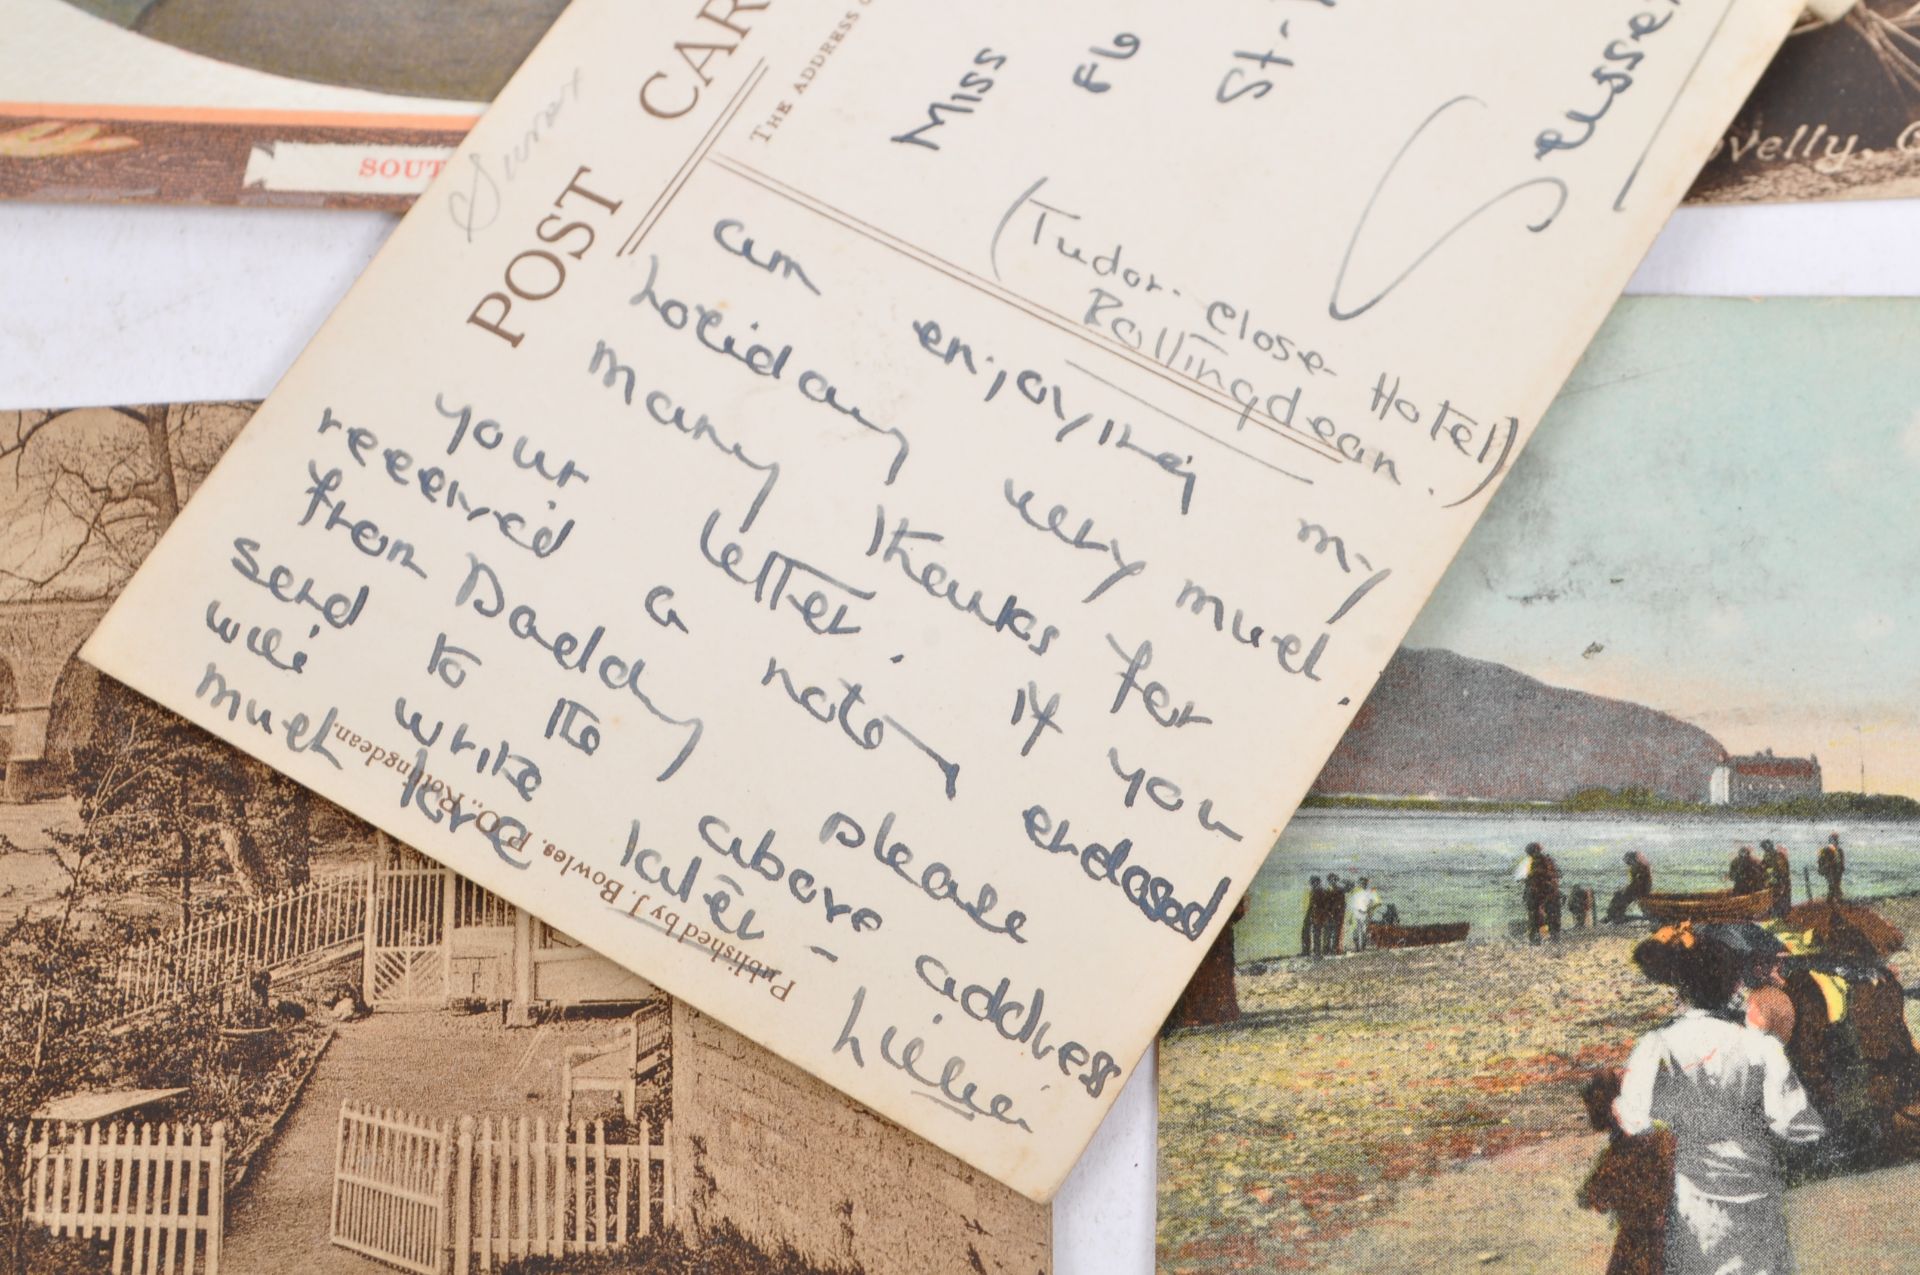 SOUT
Sussex
POST CAR
THE ADDRESS
Miss
F6
St-
Sussex
(Tudor-close-Hotel)
Rottingdean.
am enjoying my
holiday very much.
Many thanks for
your letter. If you
received a note enclosed
from Daddy please
send to the above address
will write later –
much love
Lillian
Published by J. Bowles, P.O., Rottingdean.
ovelly. C